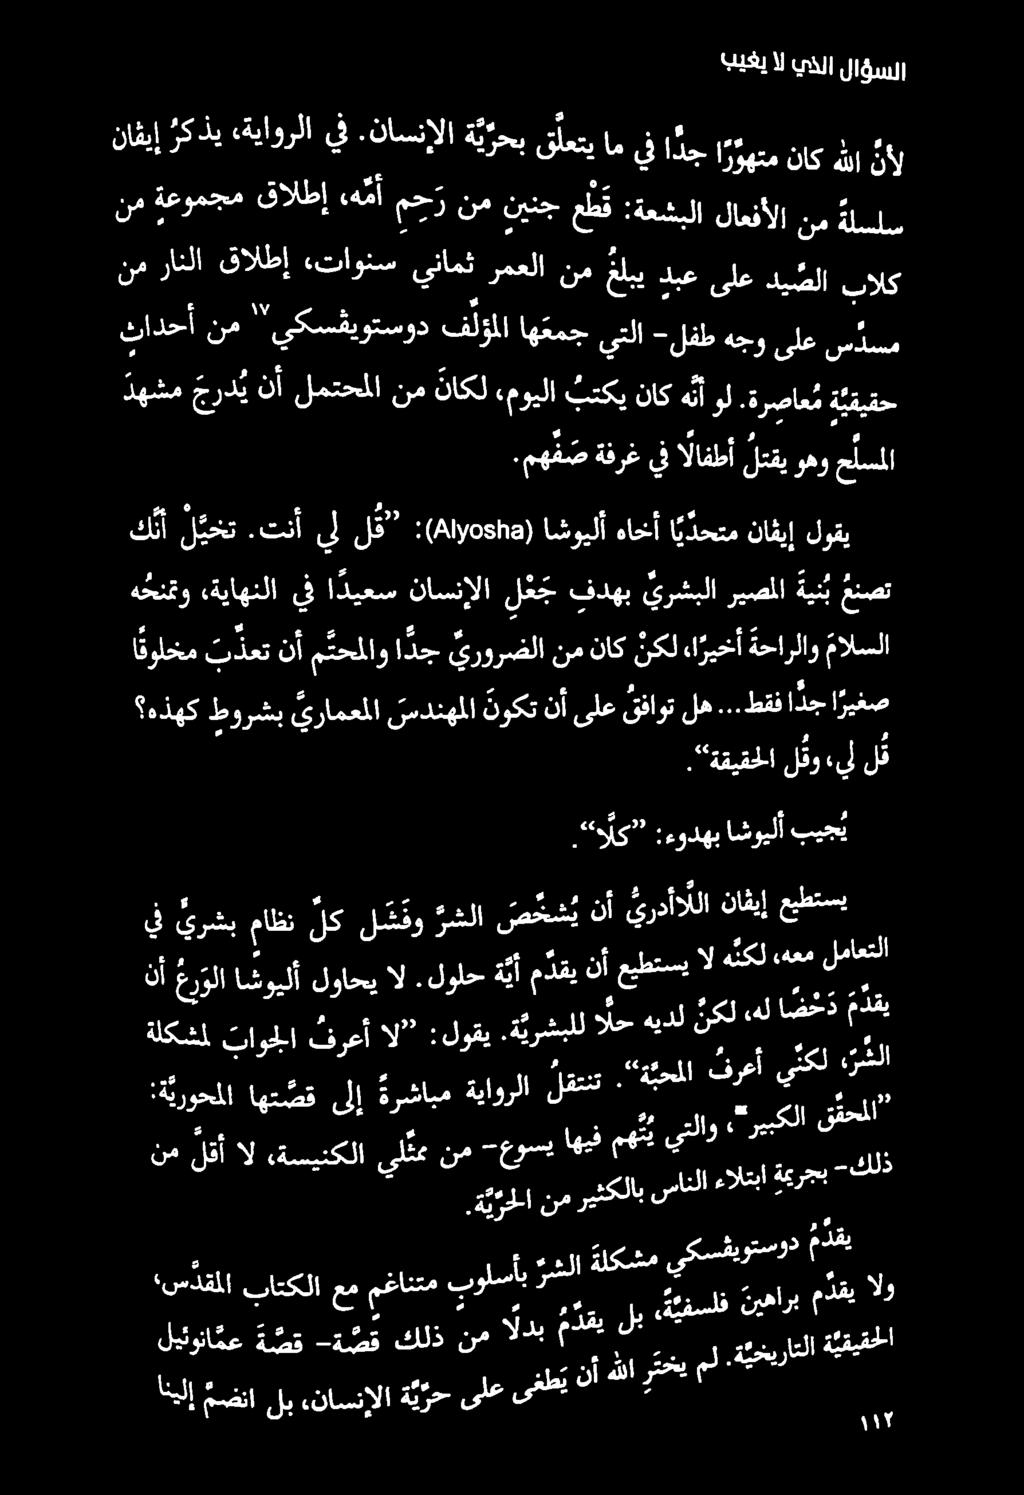 السؤال الذي لا يغيب
لأنَّ الله كان متهوِّرًا جدًّا في ما يتعلَّق بحرّيَّة الإنسان. في الرواية، يذكرُ إيڤان
سلسلةً من الأفعال البشعة: قَطْع جنينٍ من رَحِمِ أمّه، إطلاق مجموعةٍ من
كلاب الصَّيد على عبدٍ يبلغُ من العمر ثماني سنوات، إطلاق النار من
مسدَّس على وجه طفل- التي جمعَها المؤلِّف دوستويڤسكي١٧ من أحداثٍ
حقيقيَّةٍ مُعاصِرة. لو أنَّه كان يكتبُ اليوم، لكانَ من المحتمل أن يُدرجَ مشهدَ
المسلَّح وهو يقتلُ أطفالًا في غرفة صَفِّهم.
يقول إيڤان متحدِّيًا أخاه أليوشا (Alyosha): ”قُل لي أنت. تخيَّلْ أنَّك
تصنعُ بُنيةَ المصير البشريِّ بهدفِ جَعْلِ الإنسان سعيدًا في النهاية، وتمنَحُه
السلامَ والراحةَ أخيرًا، لكنْ كان من الضروريِّ جدًّا والمحتَّم أن تعذِّبَ مخلوقًا
صغيرًا جدًّا فقط... هل توافقُ على أن تكونَ المهندسَ المعماريَّ بشروطٍ كهذه؟
قُل لي، وقُل الحقيقة“.
يُجيب أليوشا بهدوء: ”كلَّا“.
يستطيع إيڤان اللَّاأدريُّ أن يُشخِّصَ الشرَّ وفَشَل كلِّ نظامٍ بشريٍّ في
التعامل معه، لكنَّه لا يستطيع أن يقدِّم أيَّة حلول. لا يحاول أليوشا الوَرِعُ أن
يقدِّمَ دَحْضًا له، لكنْ لديه حلًّا للبشريَّة. يقول: ”لا أعرفُ الجوابَ لمشكلة
الشَّرّ، لكنّي أعرفُ المحبَّة“. تنتقلُ الرواية مباشرةً إلى قصَّتها المحوريَّة:
”المحقِّق الكبير“، والتي يُتَّهم فيها يسوع- من ممثّلي الكنيسة، لا أقلَّ من
ذلك- بجريمةِ ابتلاء الناس بالكثير من الحرّيَّة.
يقدِّمُ دوستويڤسكي مشكلةَ الشرِّ بأسلوبٍ متناغمٍ مع الكتاب المقدَّس،
ولا يقدِّم براهينَ فلسفيَّة، بل يقدِّمُ بدلًا من ذلك قصَّة- قصَّةَ عمَّانوئيل
الحقيقيَّة التاريخيَّة. لم يخترِ الله أن يَطغى على حرّيَّة الإنسان، بل انضمَّ إلينا
١١٢